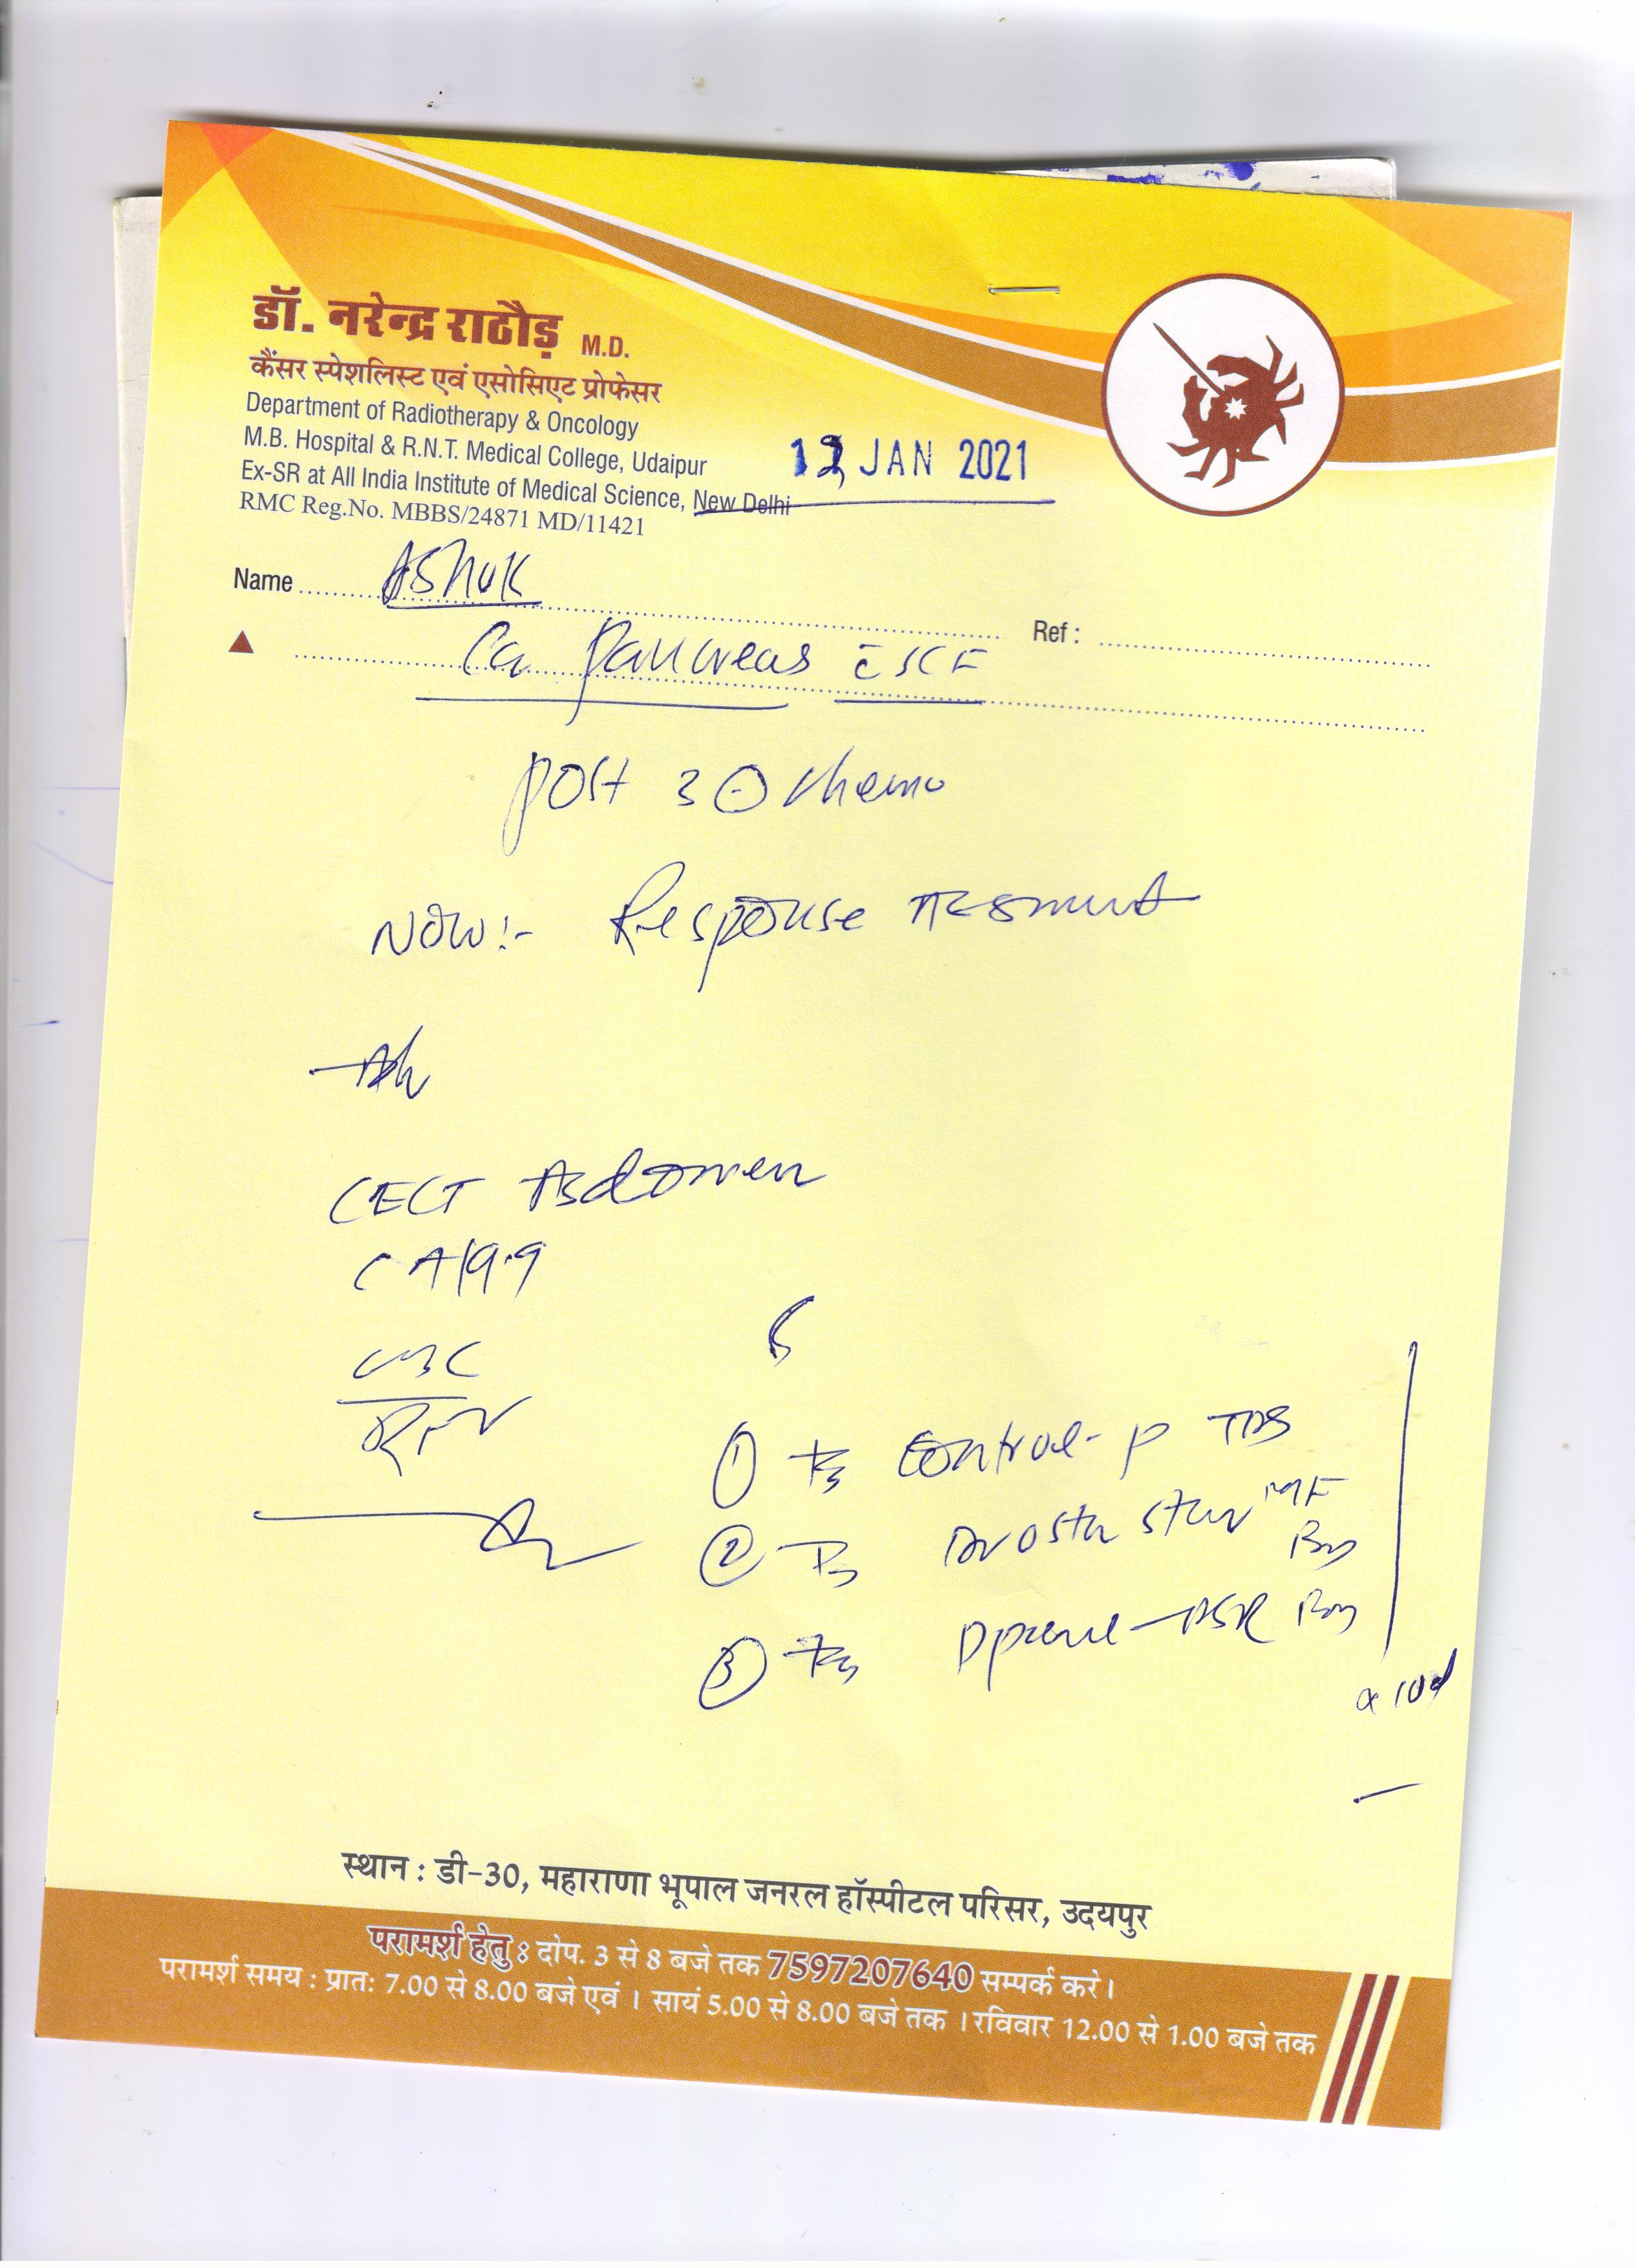 डॉ. नरेन्द्र राठौड़ M.D.
कैंसर स्पेशलिस्ट एवं एसोसिएट प्रोफेसर
Department of Radiotherapy & Oncology
M.B. Hospital & R.N.T. Medical College, Udaipur
Ex-SR at All India Institute of Medical Science, New Delhi
RMC Reg.No. MBBS/24871 MD/11421
12 JAN 2021
Name ASHOK
Ref :
Ca Pancreas
Post 3 chemo
NOW:- Response
Adv
CECT Abdomen
CA19.9
CBC
RFT
① Control-P TDS
②
③ -DSR
x 10d
स्थान : डी-30, महाराणा भूपाल जनरल हॉस्पीटल परिसर, उदयपुर
परामर्श हेतु : दोप. 3 से 8 बजे तक 7597207640 सम्पर्क करे।
परामर्श समय : प्रातः 7.00 से 8.00 बजे एवं । सायं 5.00 से 8.00 बजे तक । रविवार 12.00 से 1.00 बजे तक